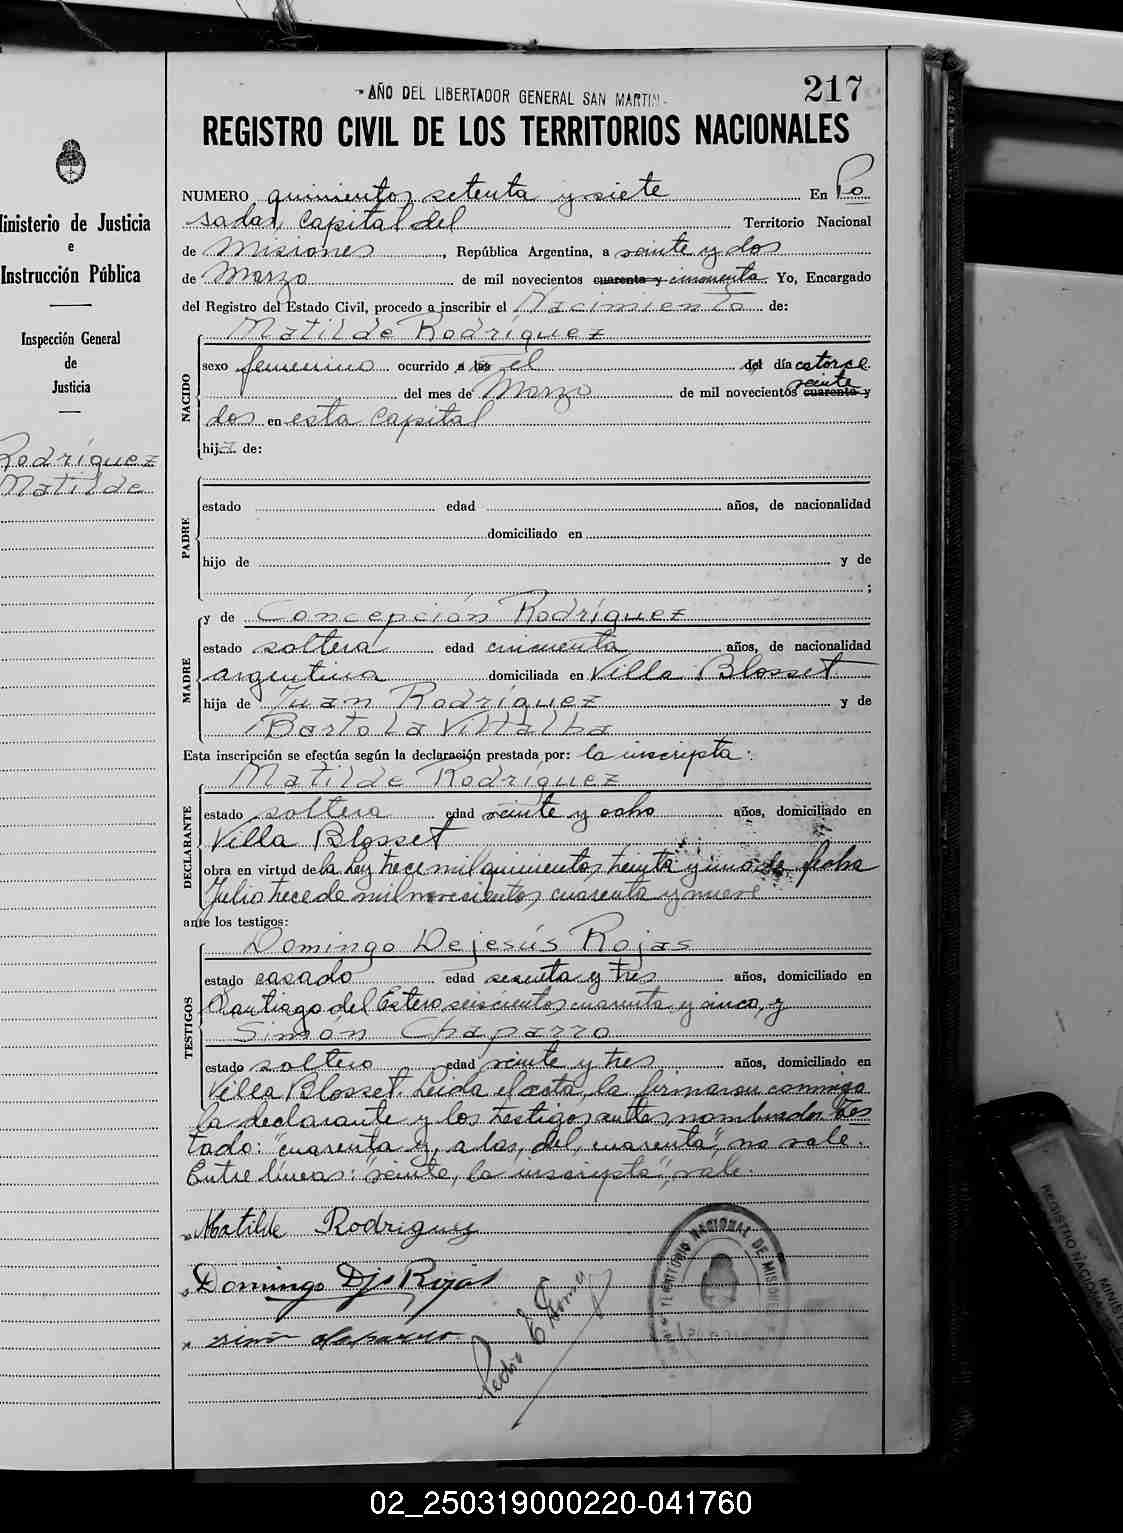 - AÑO DEL LIBERTADOR GENERAL SAN MARTIN -
217
REGISTRO CIVIL DE LOS TERRITORIOS NACIONALES
Ministerio de Justicia
e
Instrucción Pública
Inspección General
de
Justicia
Rodríguez
Matilde
NUMERO quinientos setenta y siete En Po
sadas, capital del Territorio Nacional
de Misiones, República Argentina, a veinte y dos
de Marzo de mil novecientos cuarenta y cincuenta. Yo, Encargado
del Registro del Estado Civil, procedo a inscribir el Nacimiento de:
Matilde Rodríguez
NACIDO
sexo femenino ocurrido a las el del día catorce
del mes de Marzo de mil novecientos veinte cuarenta y
dos en esta Capital
hija de:
PADRE
estado edad años, de nacionalidad
domiciliado en
hijo de y de
;
MADRE
y de Concepción Rodríguez
estado soltera edad cincuenta años, de nacionalidad
argentina domiciliada en Villa Blosset
hija de Juan Rodríguez y de
Bartola Villalba
Esta inscripción se efectúa según la declaración prestada por: la inscripta:
Matilde Rodríguez
DECLARANTE
estado soltera edad veinte y ocho años, domiciliado en
Villa Blosset
obra en virtud de la Ley trece mil quinientos treinta y uno de fecha
Julio trece de mil novecientos cuarenta y nueve
ante los testigos:
Domingo Dejesús Rojas
TESTIGOS
estado casado edad sesenta y tres años, domiciliado en
Santiago del Estero seiscientos cuarenta y cinco, y
Simón Chaparro
estado soltero edad veinte y tres años, domiciliado en
Villa Blosset. Leída el acta, la firmaron conmigo
la declarante y los testigos antes nombrados. Tes
tado: "cuarenta y, a las, del, cuarenta", no vale.
Entre líneas: "veinte, la inscripta", vale.
Matilde Rodriguez
Domingo Djs Rojas
Pedro E
TERRITORIO NACIONAL DE MISIONES
REGISTRO NACIONAL
MINIST
02_250319000220-041760